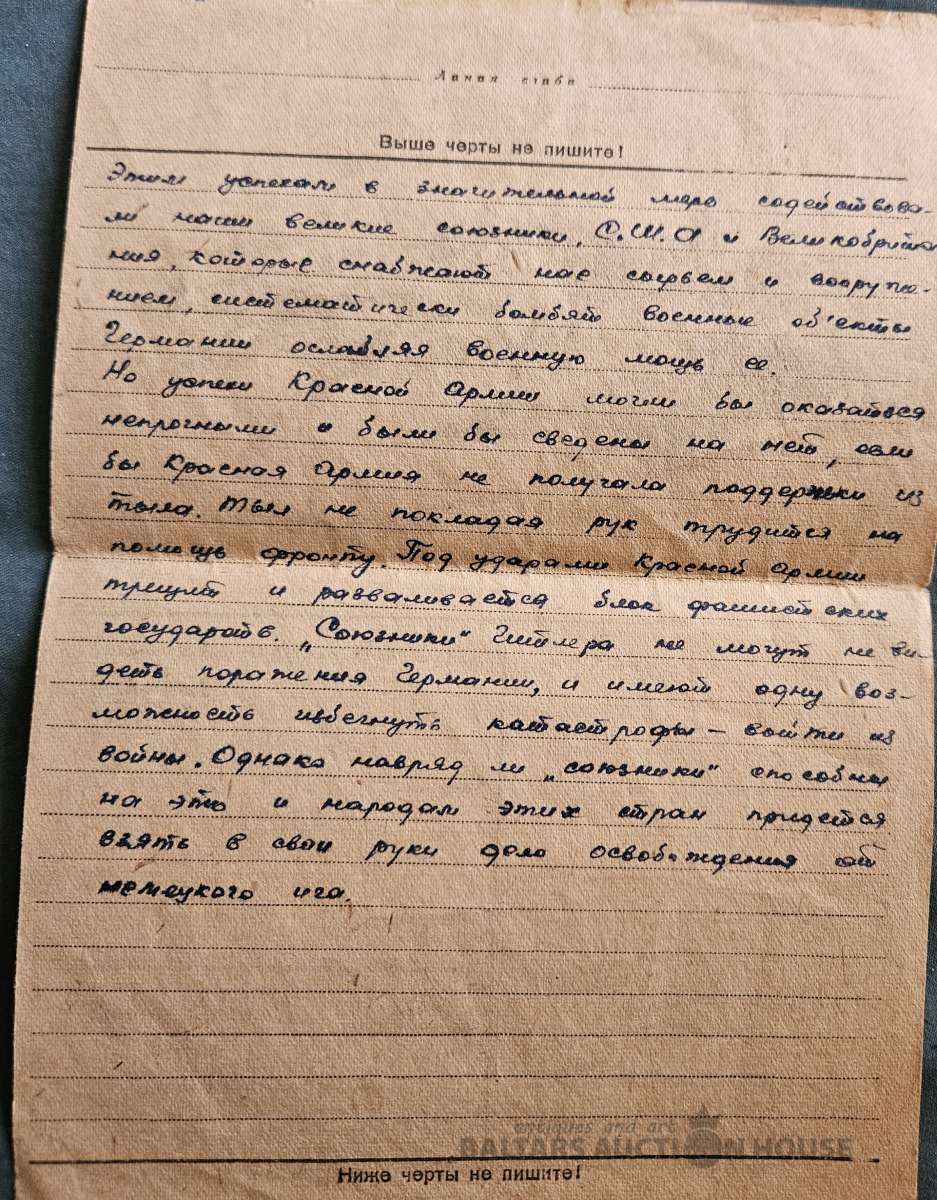 Линия сгиба
Выше черты не пишите!
Этим успехам в значительной мере содействова-
ли наши великие союзники, С.Ш.А и Великобрита
ния, которые снабжают нас сырьем и вооруже-
нием, систематически бомбят военные об'екты
Германии ослабляя военную мощь ее.
Но успехи Красной Армии могли бы оказаться
непрочными и были бы сведены на нет, если
бы Красная Армия не получала поддержки из
тыла. Тыл не покладая рук трудится на
помощь фронту. Под ударами Красной Армии
трещит и разваливается блок фашистских
государств. „Союзники" Гитлера не могут не ви-
деть поражения Германии, и имеют одну воз-
можность избегнуть катастрофы – выйти из
войны. Однако навряд ли „союзники" способны
на это и народам этих стран придется
взять в свои руки дело освобождения от
немецкого ига.
antiques and art
BALTARS AUCTION HOUSE
Ниже черты не пишите!